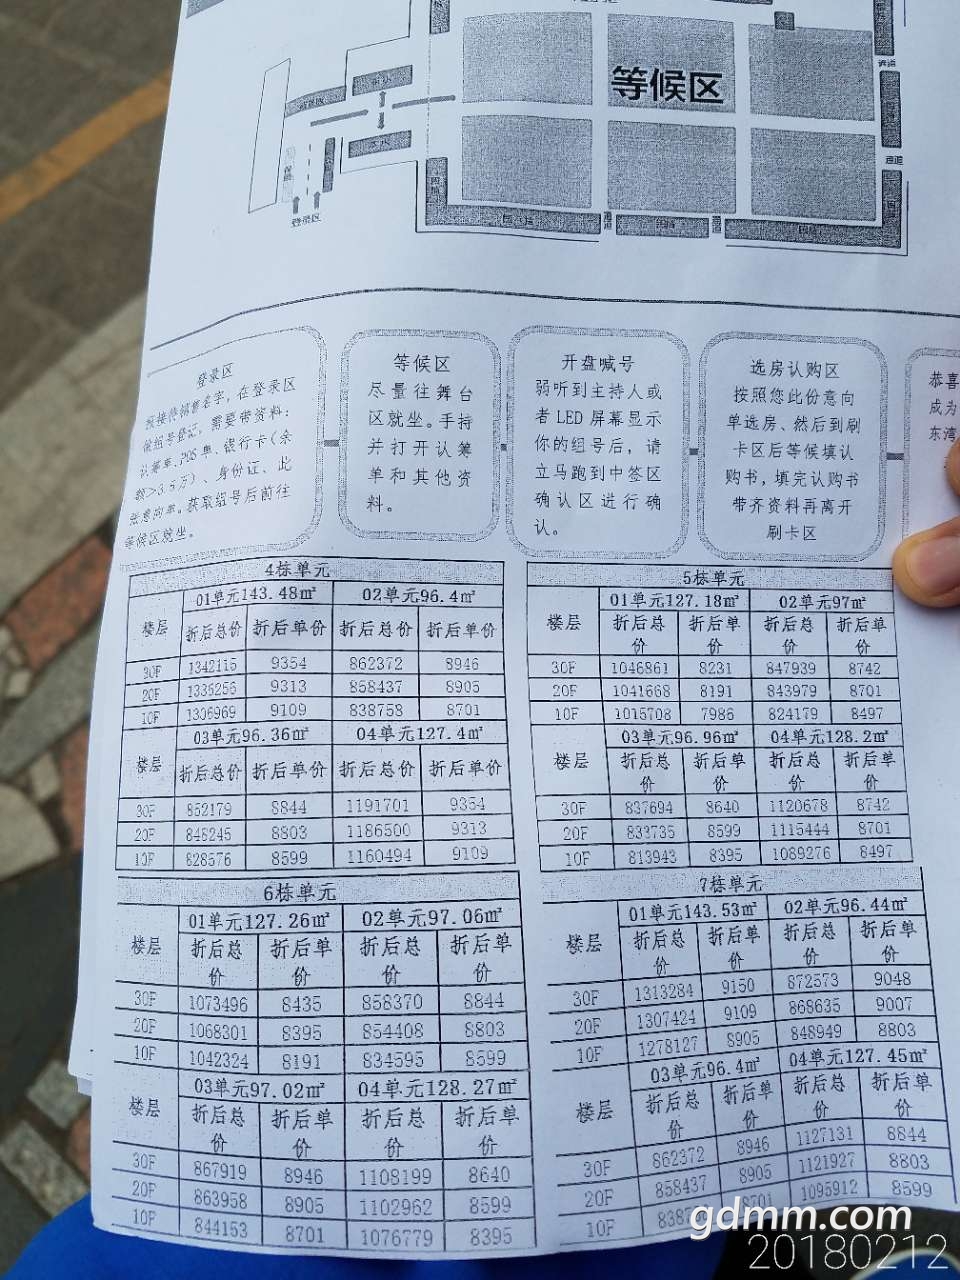 等候区
登录区
等候区
尽量往舞台
区就坐。手持
并打开认筹
单和其他资
料。
开盘喊号
弱听到主持人或
者LED屏幕显示
你的组号后，请
立马跑到中签区
确认区进行确
认。
选房认购区
按照您此份意向
单选房、然后到刷
卡区后等候填认
购书，填完认购书
带齐资料再离开
刷卡区
恭喜
成为
东湾
登录区
接待销售名字，在登录区
做组号登记，需要带资料：
认筹单、POS单、银行卡（余
额>3.5万）、身份证、此
张意向单。获取组号后前往
等候区就坐。
4栋单元
01单元143.48㎡ 02单元96.4㎡
楼层 折后总价 折后单价 折后总价 折后单价
30F 1342115 9354 862372 8946
20F 1336256 9313 858437 8905
10F 1306969 9109 838758 8701
03单元96.36㎡ 04单元127.4㎡
楼层 折后总价 折后单价 折后总价 折后单价
30F 852179 8844 1191701 9354
20F 848245 8803 1186500 9313
10F 828576 8599 1160494 9109
5栋单元
01单元127.18㎡ 02单元97㎡
楼层 折后总价 折后单价 折后总价 折后单价
30F 1046861 8231 847939 8742
20F 1041668 8191 843979 8701
10F 1015708 7986 824179 8497
03单元96.96㎡ 04单元128.2㎡
楼层 折后总价 折后单价 折后总价 折后单价
30F 837694 8640 1120678 8742
20F 833735 8599 1115444 8701
10F 813943 8395 1089276 8497
6栋单元
01单元127.26㎡ 02单元97.06㎡
楼层 折后总价 折后单价 折后总价 折后单价
30F 1073496 8435 858370 8844
20F 1068301 8395 854408 8803
10F 1042324 8191 834595 8599
03单元97.02㎡ 04单元128.27㎡
楼层 折后总价 折后单价 折后总价 折后单价
30F 867919 8946 1108199 8640
20F 863958 8905 1102962 8599
10F 844153 8701 1076779 8395
7栋单元
01单元143.53㎡ 02单元96.44㎡
楼层 折后总价 折后单价 折后总价 折后单价
30F 1313284 9150 872573 9048
20F 1307424 9109 868635 9007
10F 1278127 8905 848949 8803
03单元96.4㎡ 04单元127.45㎡
楼层 折后总价 折后单价 折后总价 折后单价
30F 862372 8946 1127131 8844
20F 858437 8905 1121927 8803
10F 8701 1095912 8599
gdmm.com
20180212